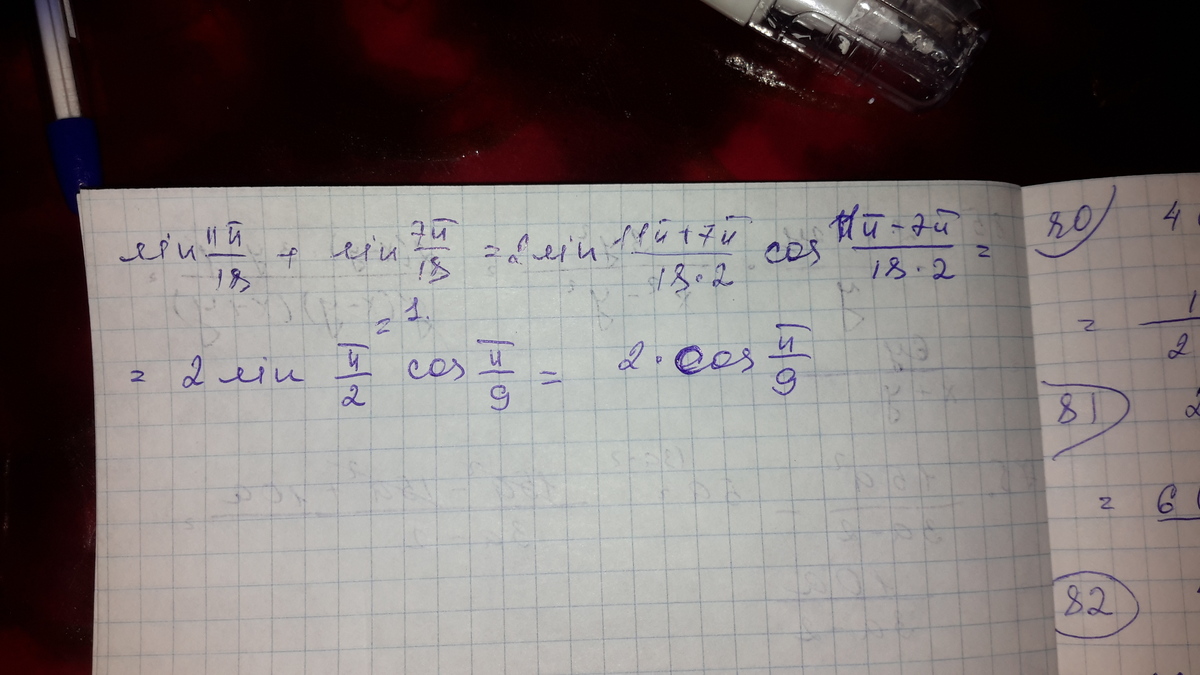 sin 11π/18 + sin 7π/18 = 2 sin 11π+7π/18·2 cos 11π-7π/18·2 =
= 1.
= 2 sin π/2 cos π/9 = 2·cos π/9
80) 4
= 1/2
81) 2
= 6
82